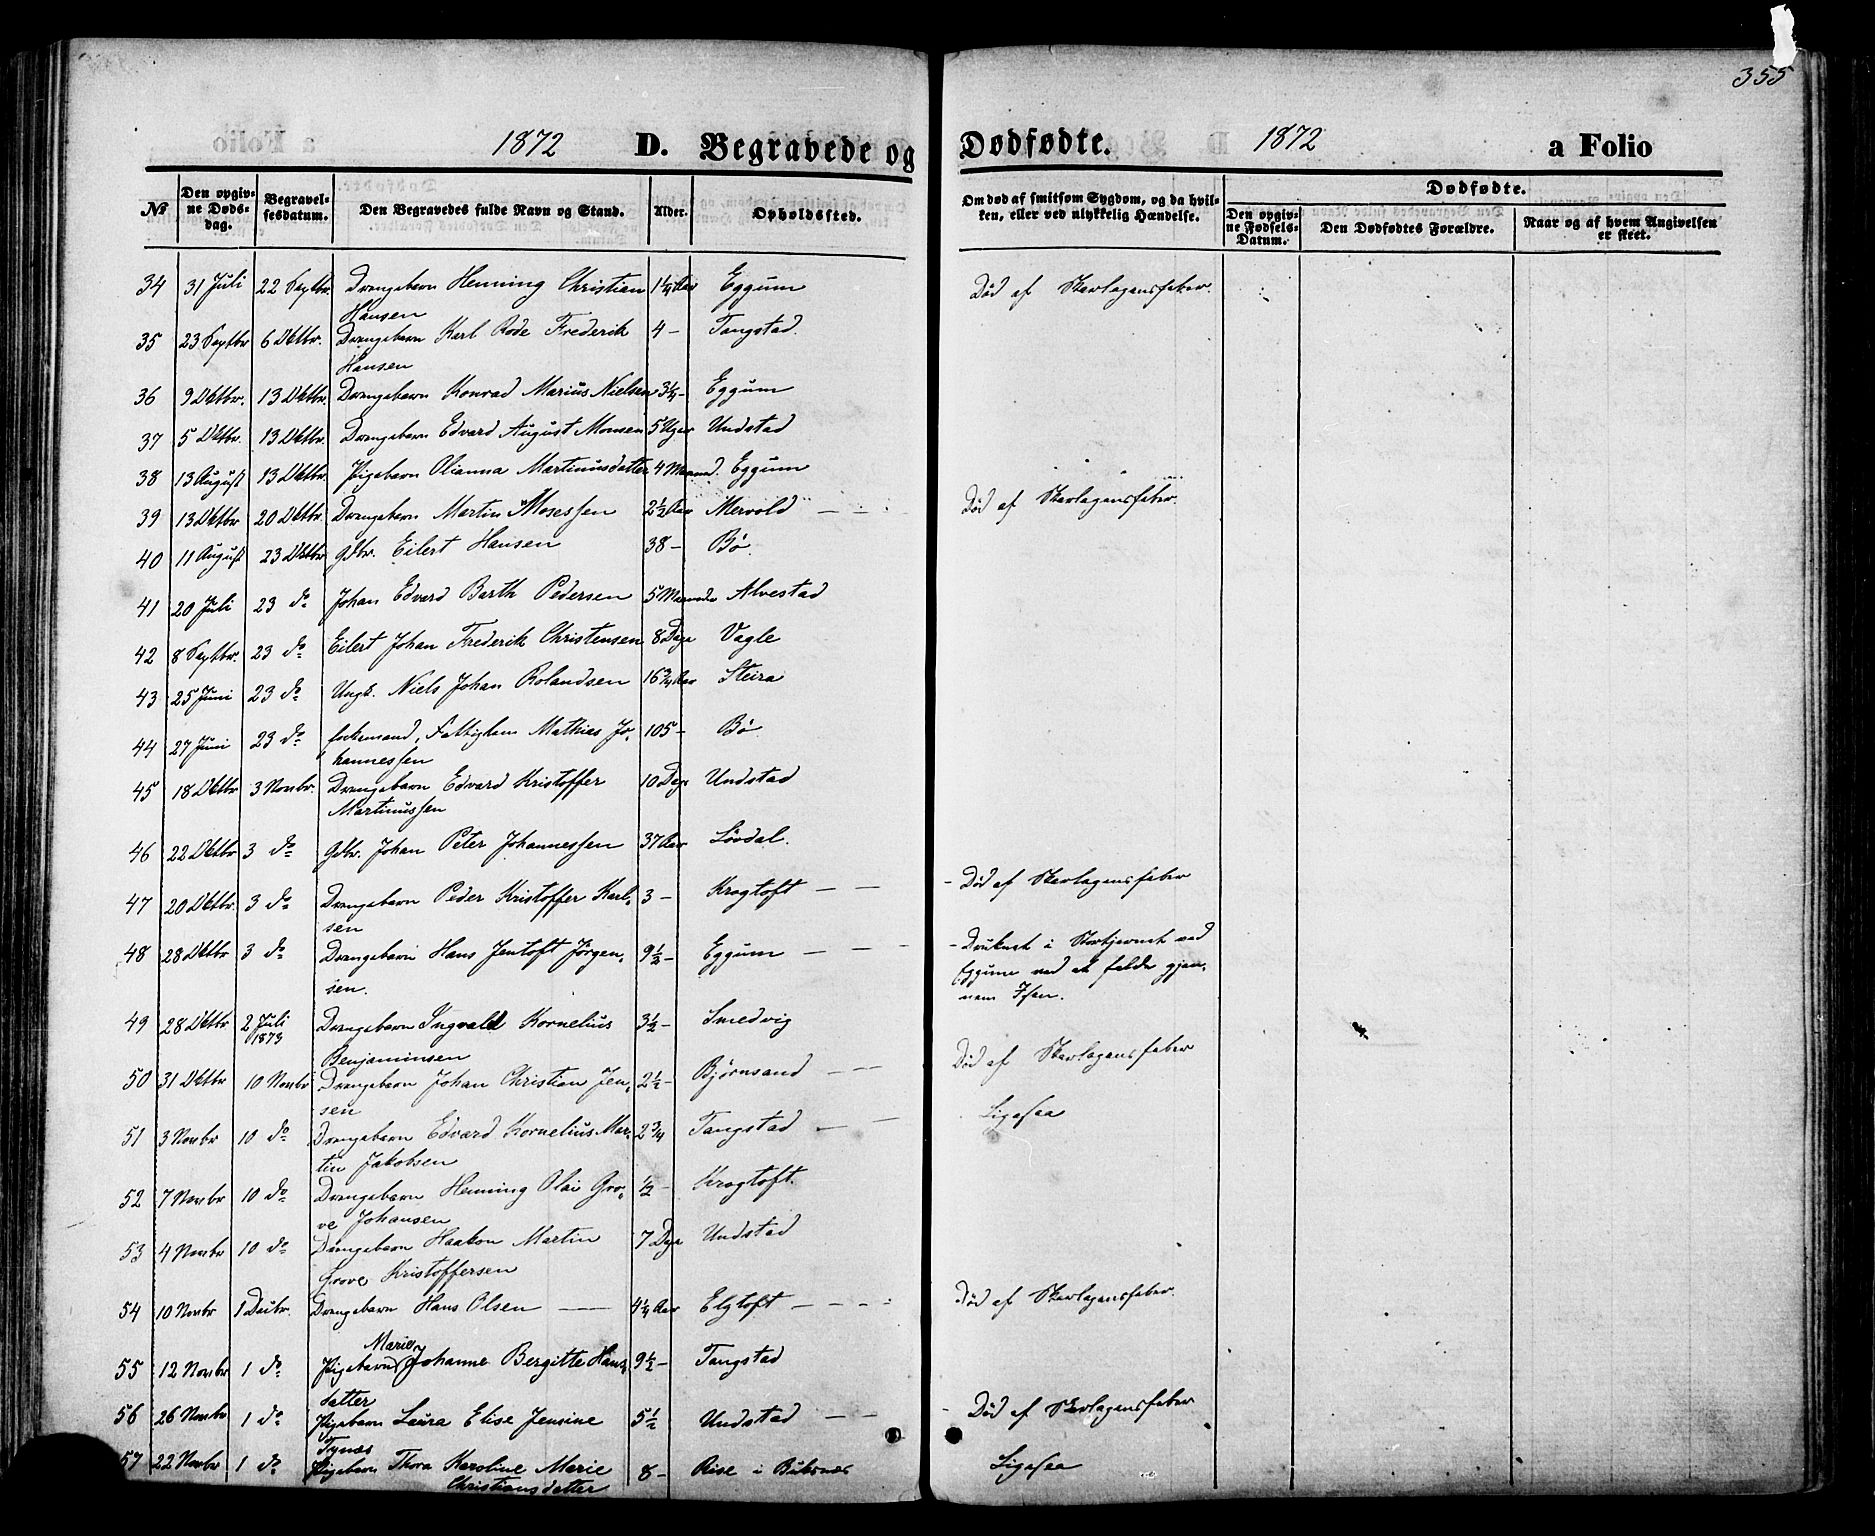 355
1872 D. Begravede og Dødfødte. 1872 a Folio
№ Den opgivne Dødsdag. Begravelsesdatum. Den Begravedes fulde Navn og Stand. Alder. Opholdssted. Om død af smitsom Sygdom, og da hvilken, eller ved ulykkelig Hændelse. Dødfødte.
Den opgivne Fødsels-Datum. Den Dødfødtes Forældre. Naar og af hvem Angivelsen er skeet.
34 31 Juli 22 Septbr. Drengebarn Henning Christian 1 1/4 Aar Eggum Død af Skarlagensfeber.
Hansen
35 23 Septbr 6 Oktbr. Drengebarn Karl Rode Frederik 4 - Tangstad.
Hansen
36 9 Oktbr. 13 Oktbr. Drengebarn Konrad Marius Nielsen 3/4 - Eggum
37 5 Oktbr. 13 Oktbr. Drengebarn Edvard August Monsen 5 Uger Undstad
38 13 August 13 Oktbr. Pigebarn Olianna Martinusdatter 4 Maaned. Eggum
39 13 Oktbr 20 Oktbr. Drengebarn Martin Mosessen 2 1/2 Aar Mervold — — Død af Skarlagensfeber.
40 11 August 23 Oktbr Gbr. Eilert Hansen 38 - Bø
41 20 Juli 23 do Johan Edvard Barth Pedersen 5 Maaneder Alvestad
42 8 Septbr. 23 do Eilert Johan Frederik Christensen 8 Dage Vagle
43 25 Juni 23 do Ungk. Niels Johan Rolandsen 16 3/4 Aar Steira
44 27 Juni 23 do Enkemand, Fattiglem Mathias Jo- 105 - Bø
hannessen
45 18 Oktbr 3 Novbr. Drengebarn Edvard Kristoffer 10 Dage Undstad
Martinussen
46 22 Oktbr 3 do Gbr. Johan Peter Johannessen 37 Aar Løvdal.
47 20 Oktbr. 3 do Drengebarn Peder Kristoffer Karl- 3 - Krogtoft — — - Død af Skarlagensfeber
sen
48 28 Oktbr 3 do Drengebarn Hans Jentoft Jørgen- 9 1/2 - Eggum — — - - Druknet i Storkjernet ved
sen. Eggum ved at falde gjen-
nem Isen.
49 28 Oktbr 2 Juli 1873 Drengebarn Ingvald Kornelius 3 1/2 - Smedvig
Benjaminsen
50 31 Oktbr 10 Novbr Drengebarn Johan Christian Jen- 2 1/2 - Bjørnsand — — Død af Skarlagensfeber
sen
51 3 Novbr 10 do Drengebarn Edvard Kornelius Mar- 2 3/4 Tangstad — — Ligesaa
tin Jakobsen
52 7 Novbr 10 do Drengebarn Henning Olai Gro- 1/2 - Krogtoft.
ve Johansen
53 4 Novbr 10 do Drengebarn Haakon Martin 7 Dage Undstad
Grove Kristoffersen
54 10 Novbr 1 Decbr. Drengebarn Hans Olsen — 4 1/4 Aar Elgtoft — - - Død af Skarlagensfeber.
Marie
55 12 Novbr 1 do Pigebarn Johanne Bergitte Hans- 9 1/2 - Tangstad
datter
56 26 Novbr 1 do Pigebarn Laura Elise Jensine 5 1/2 Undstad — — - Død af Skarlagensfeber
Tynæs
57 22 Novbr 1 do Pigebarn Thora Karoline Marie 8 - Rise i Buksnæs Ligesaa
Christiansdatter